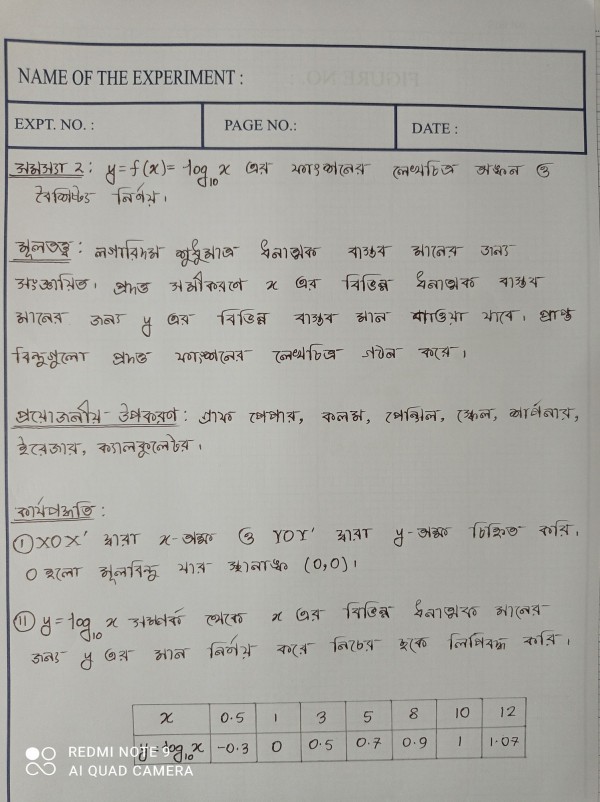 NAME OF THE EXPERIMENT :
EXPT. NO. :
PAGE NO.:
DATE :
সমস্যা ২: y=f(x)= log₁₀ x এর ফাংশনের লেখচিত্র অঙ্কন ও
বৈশিষ্ট্য নির্ণয়।
মূলতত্ত্ব : লগারিদম শুধুমাত্র ধনাত্মক বাস্তব মানের জন্য
সংজ্ঞায়িত। প্রদত্ত সমীকরণে x এর বিভিন্ন ধনাত্মক বাস্তব
মানের জন্য y এর বিভিন্ন বাস্তব মান পাওয়া যাবে। প্রাপ্ত
বিন্দুগুলো প্রদত্ত ফাংশনের লেখচিত্র গঠন করে।
প্রয়োজনীয় উপকরণ : গ্রাফ পেপার, কলম, পেন্সিল, স্কেল, শার্পনার,
ইরেজার, ক্যালকুলেটর।
কার্যপদ্ধতি :
(i) XOX′ দ্বারা x-অক্ষ ও YOY′ দ্বারা y-অক্ষ চিহ্নিত করি।
O হলো মূলবিন্দু যার স্থানাঙ্ক (0,0)।
(ii) y=log₁₀ x সম্পর্ক থেকে x এর বিভিন্ন ধনাত্মক মানের
জন্য y এর মান নির্ণয় করে নিচের ছকে লিপিবদ্ধ করি।
x 0.5 1 3 5 8 10 12
y=log₁₀x -0.3 0 0.5 0.7 0.9 1 1.07
REDMI NOTE 9
AI QUAD CAMERA